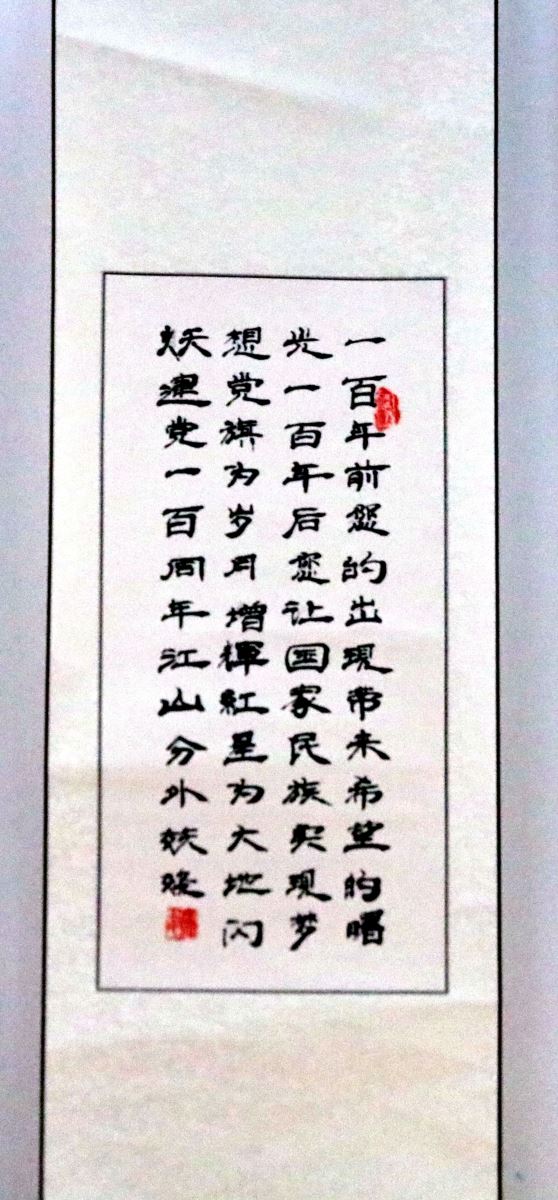 一百年前您的出現带来希望的曙
光一百年后您让国家民族实现梦
想党旗为岁月增輝紅星为大地闪
建党一百周年江山分外妖娆